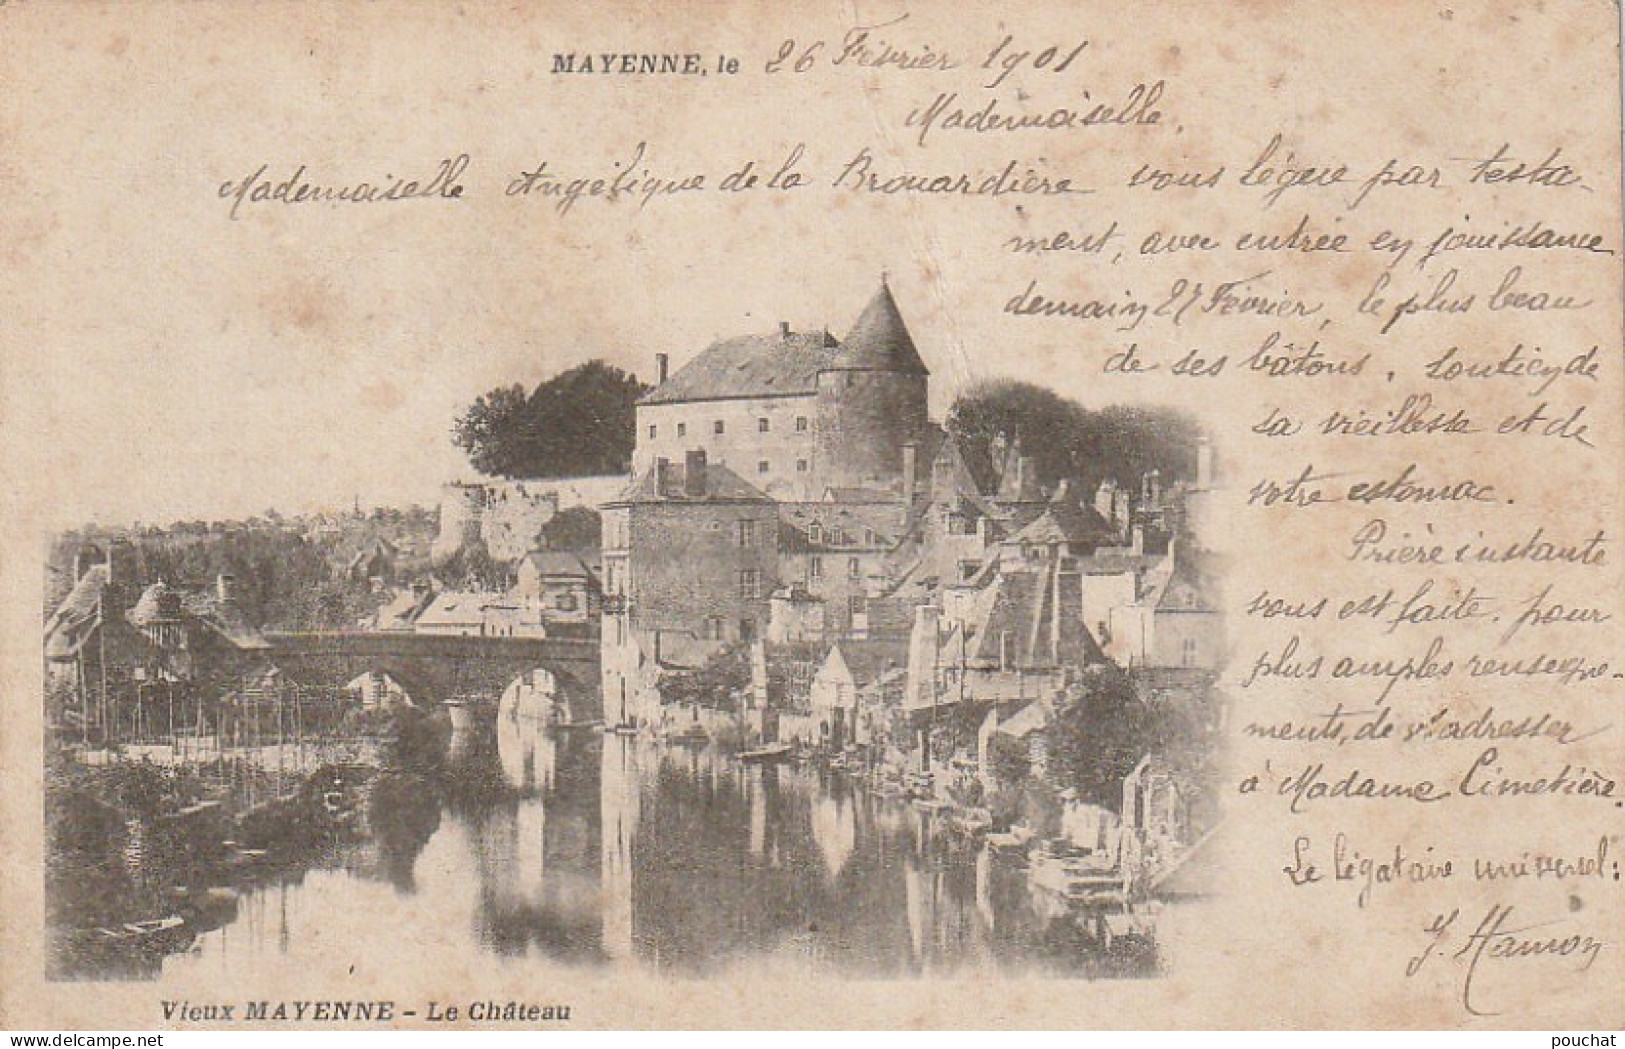 MAYENNE, le 26 Février 1901
Mademoiselle,
Mademoiselle Angélique de la Brouardière vous légue par testa-
ment, avec entrée en jouissance
demain 27 Février, le plus beau
de ses bâtons, soutien de
sa vieillesse et de
votre estomac.
Prière instante
vous est faite, pour
plus amples renseigne-
ments, de vs adresser
à Madame Cimetière.
Le légataire universel:
J. Hamon
Vieux MAYENNE - Le Château
delcampe.net
pouchat